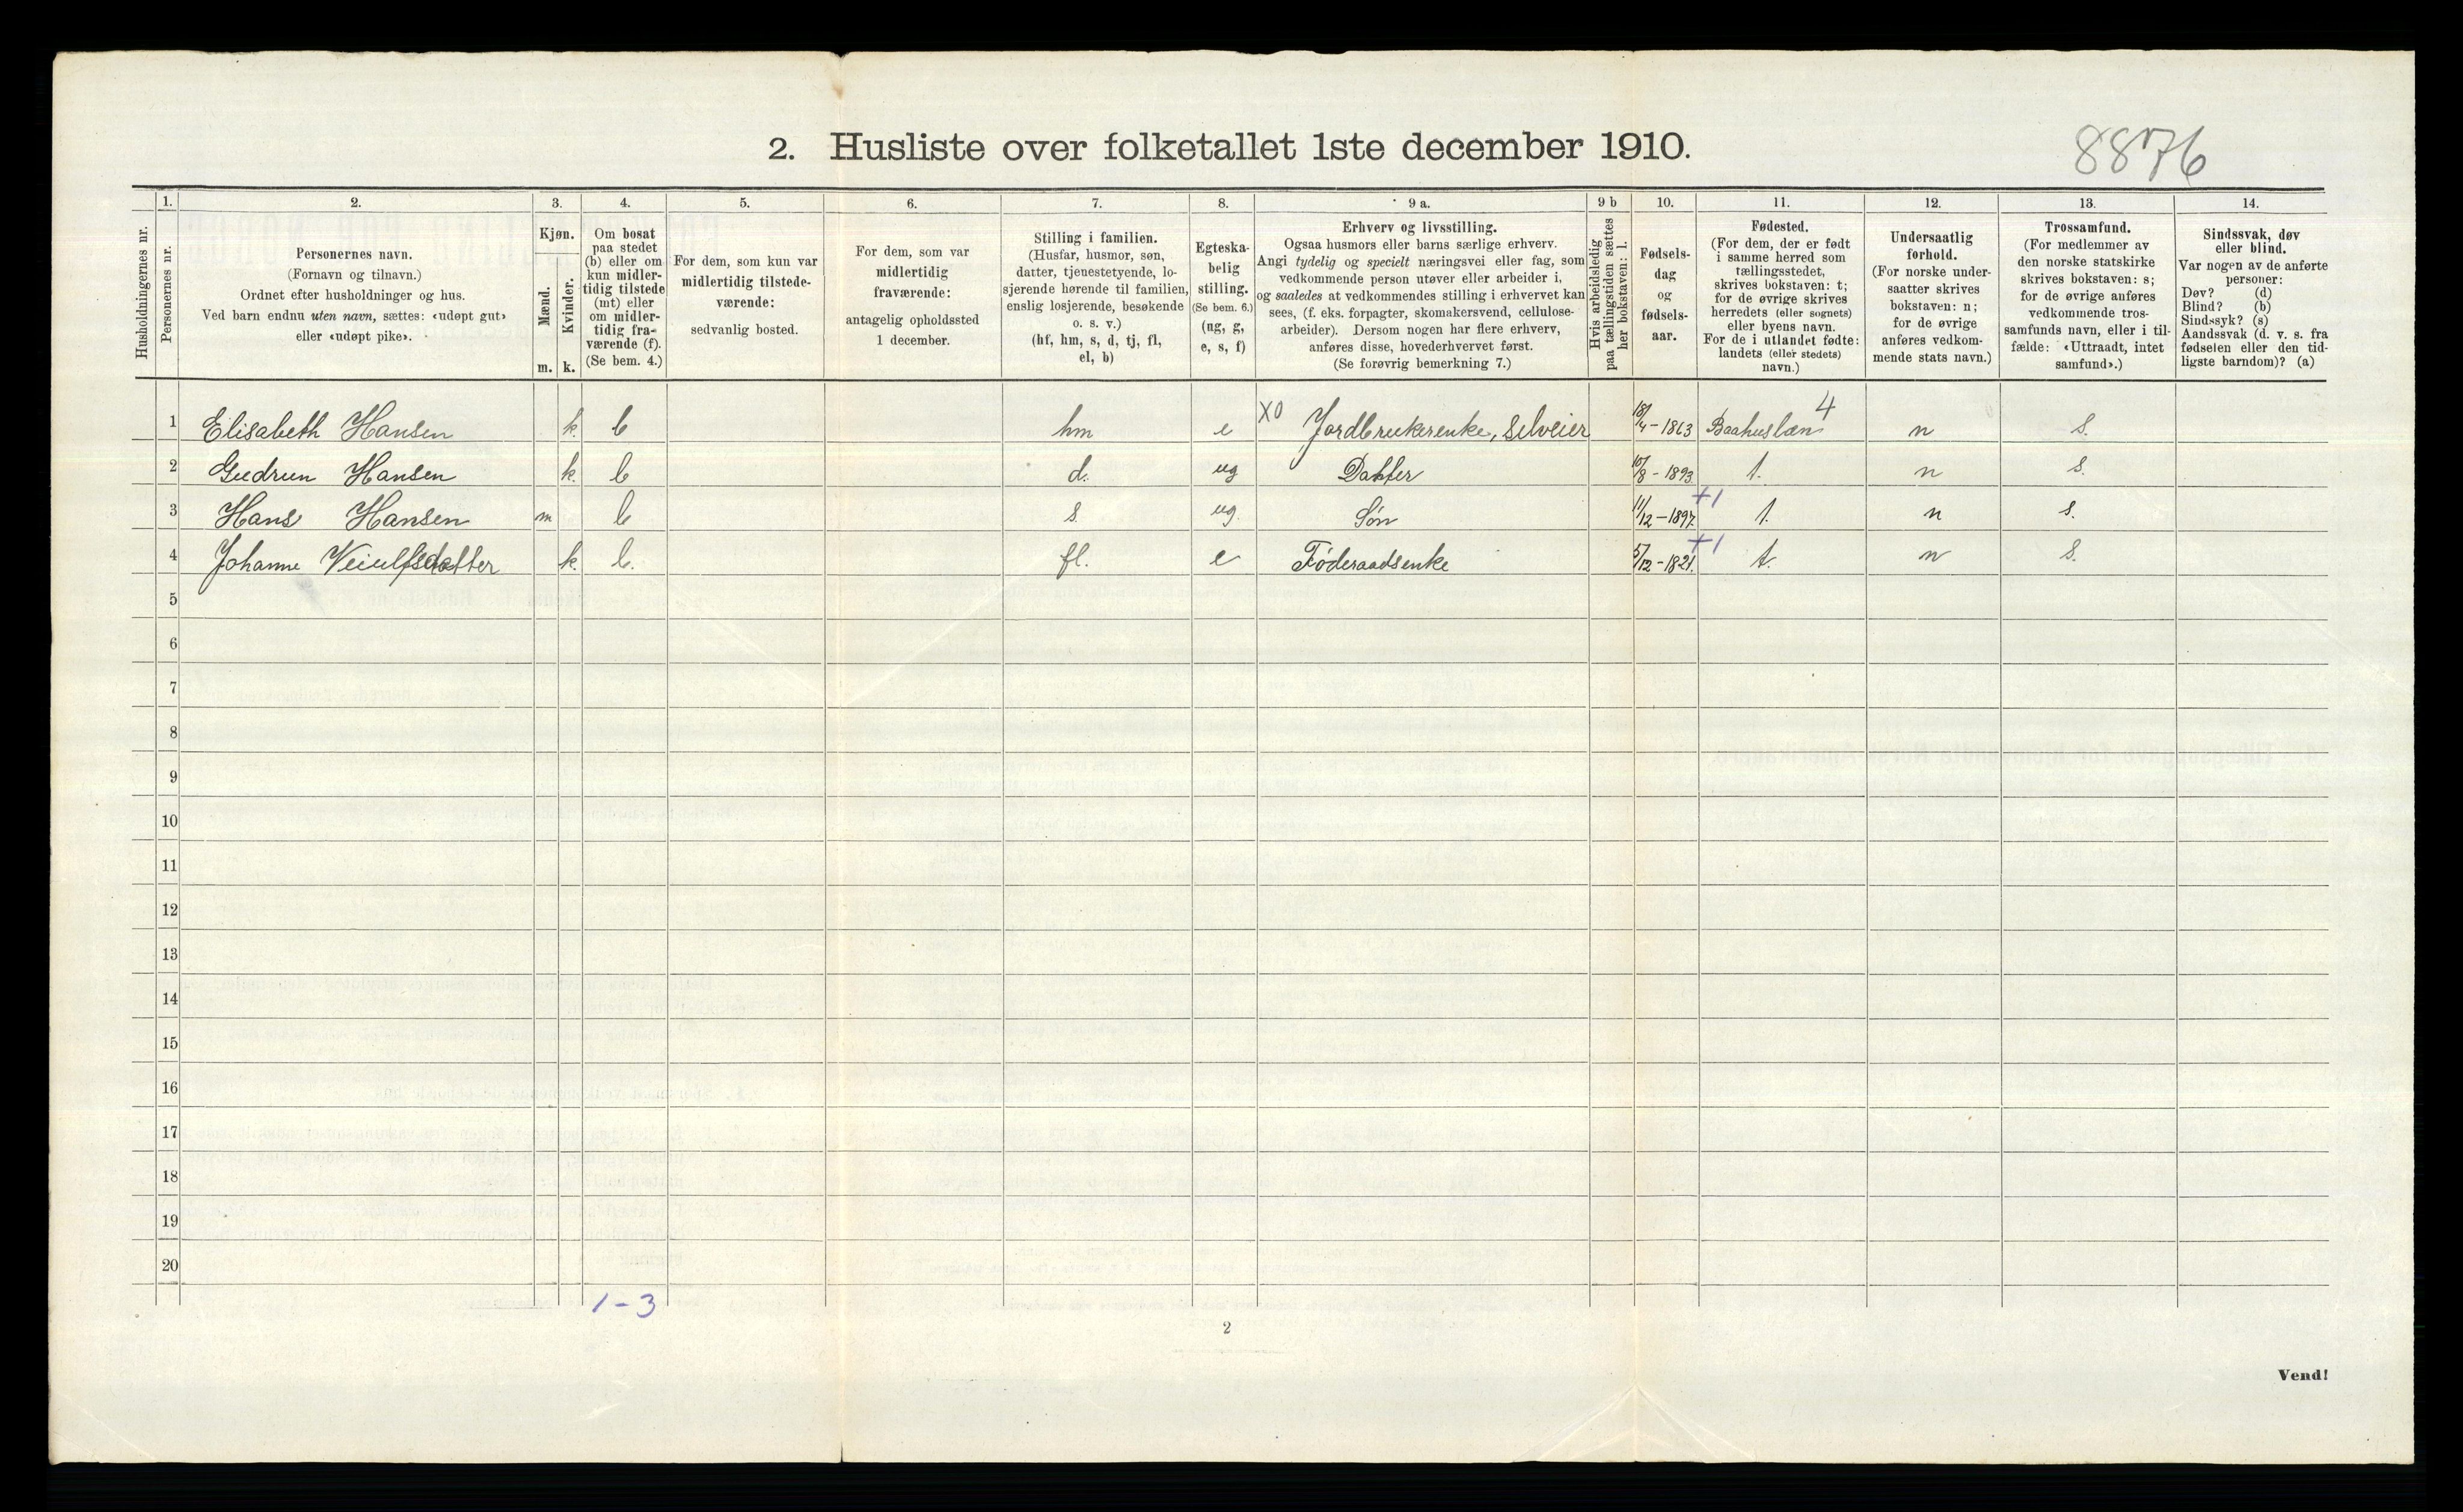 2. Husliste over folketallet 1ste december 1910.
8876
Husholdningernes nr.
1.
Personernes nr.
2.
Personernes navn.
(Fornavn og tilnavn.)
Ordnet efter husholdninger og hus.
Ved barn endnu uten navn, sættes: «udøpt gut»
eller «udøpt pike».
3.
Kjøn.
Mænd.
Kvinder.
m. k.
4.
Om bosat
paa stedet
(b) eller om
kun midler-
tidig tilstede
(mt) eller
om midler-
tidig fra-
værende (f).
(Se bem. 4.)
5.
For dem, som kun var
midlertidig tilstede-
værende:
sedvanlig bosted.
6.
For dem, som var
midlertidig
fraværende:
antagelig opholdssted
1 december.
7.
Stilling i familien.
(Husfar, husmor, søn,
datter, tjenestetyende, lo-
sjerende hørende til familien,
enslig losjerende, besøkende
o. s. v.)
(hf, hm, s, d, tj, fl,
el, b)
8.
Egteska-
belig
stilling.
(Se bem. 6.)
(ug, g,
e, s, f)
9 a.
Erhverv og livsstilling.
Ogsaa husmors eller barns særlige erhverv.
Angi tydelig og specielt næringsvei eller fag, som
vedkommende person utøver eller arbeider i,
og saaledes at vedkommendes stilling i erhvervet kan
sees, (f. eks. forpagter, skomakersvend, cellulose-
arbeider). Dersom nogen har flere erhverv,
anføres disse, hovederhvervet først.
(Se forøvrig bemerkning 7.)
9 b
Hvis arbeidsledig
paa tællingstiden sættes
her bokstaven: l.
10.
Fødsels-
dag
og
fødsels-
aar.
11.
Fødested.
(For dem, der er født
i samme herred som
tællingsstedet,
skrives bokstaven: t;
for de øvrige skrives
herredets (eller sognets)
eller byens navn.
For de i utlandet fødte:
landets (eller stedets)
navn.)
12.
Undersaatlig
forhold.
(For norske under-
saatter skrives
bokstaven: n;
for de øvrige
anføres vedkom-
mende stats navn.)
13.
Trossamfund.
(For medlemmer av
den norske statskirke
skrives bokstaven: s;
for de øvrige anføres
vedkommende tros-
samfunds navn, eller i til-
fælde: «Uttraadt, intet
samfund».)
14.
Sindssvak, døv
eller blind.
Var nogen av de anførte
personer:
Døv? (d)
Blind? (b)
Sindssyk? (s)
Aandssvak (d. v. s. fra
fødselen eller den tid-
ligste barndom)? (a)
4
1 Elisabeth Hansen k. b hm e X0 Jordbrukerenke, selveier 18/4-1863 Baahuslæn n s.
2 Gudrun Hansen k. b d. ug Datter 10/8-1893. t. n s.
+1
3 Hans Hansen m b s. ug. Søn 11/12-1897. t. n s.
+1
4 Johanne Veiulfsdatter k. b. fl. e Føderaadsenke 5/12-1821. t. n s.
5
6
7
8
9
10
11
12
13
14
15
16
17
18
19
20
1-3
2
Vend!